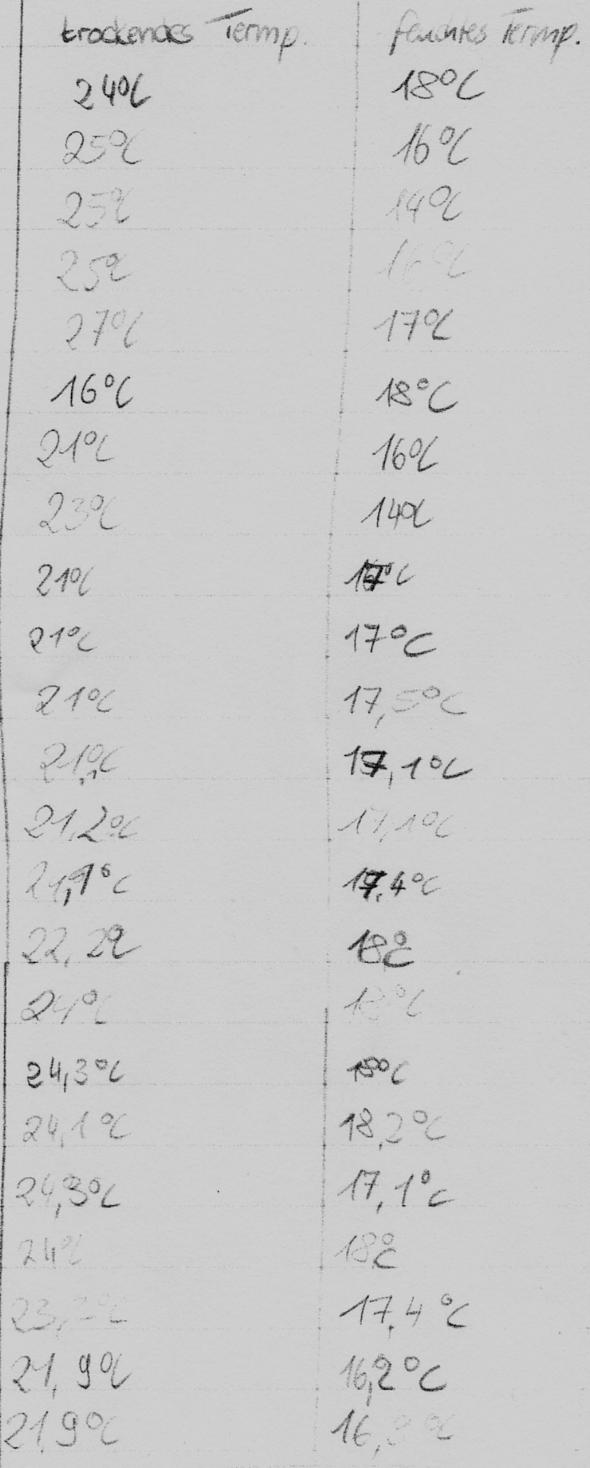 trockendes Temp. feuchtes Temp.
24°C 18°C
25°C 16°C
25°C 14°C
25°C 16°C
27°C 17°C
16°C 18°C
21°C 16°C
23°C 14°C
21°C 17°C
21°C 17°C
21°C 17,5°C
21,1°C 17,1°C
21,2°C 17,1°C
21,1°C 17,4°C
22,2°C 18°C
24°C 18°C
24,3°C 18°C
24,1°C 18,2°C
24,3°C 17,1°C
24°C 18°C
17,4°C
21,9°C 16,2°C
21,9°C